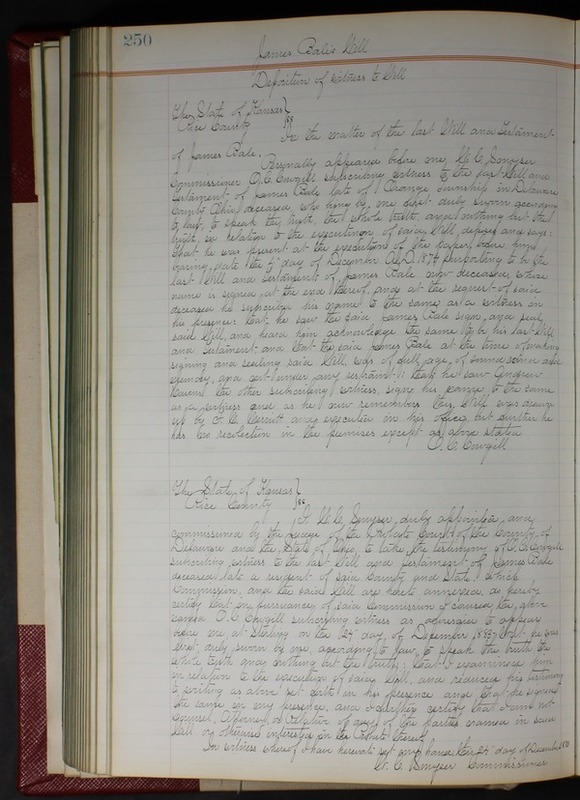 250
James Bale's Will
Deposition of Witness to Will
The State of Kansas }
Rice County } SS
In the matter of the last Will and Testament
of James Bale.
Personally appeared before me, W. C. Smyser
Commissioner O. C. Cowgill subscribing witness to the last Will and
Testament of James Bale late of Orange Township in Delaware
County Ohio, deceased, who being by me first duly sworn according
to law, to speak the truth, the whole truth, and nothing but the
truth, in relation to the execution of said Will, deposes and says:
that he was present at the execution of the paper, before him
baring date the day of December A.D. 1874 purporting to be the
last Will and Testament of James Bale now deceased, whose
name is signed at the end thereof, and at the request of said
deceased he subscribed his name to the same as a witness in
his presence: that he saw the said James Bale sign, and seal
said Will, and heard him acknowledge the same to be his last Will
and Testament, and that the said James Bale at the time of making
signing and sealing said Will, was of full age, of sound mind and
memory, and not under any restraint: that he saw Andrew
the other subscribing witness, sign his name to the same
as a witness and as he now remembers this Will was drawn
up by and executed in his office, but further he
has no recollection in the premises except as above stated
O. C. Cowgill
The State of Kansas }
Rice County } SS
I, W. C. Smyser, duly appointed, and
commissioned by the Judge of the Probate Court of the County of
Delaware and the State of Ohio, to take the testimony of O. C. Cowgill
subscribing witness to the last Will and testament of James Bale
deceased late a resident of said County and State, which
Commission, and the said Will are hereto annexed, do hereby
certify that in pursuance of said Commission I caused the above
named O. C. Cowgill subscribing witness as aforesaid to appear
before me, at Sterling on the day of December that he was
first duly sworn by me, according to law, to speak the truth the
whole truth and nothing but the truth; that I examined him
in relation to the execution of said Will, and reduced his testimony
to writing as above set forth in his presence and that he signed
the same in my presence, and I further certify that I am not
Counsel, Attorney, or Relative of any of the parties named in said
Will or otherwise interested in the Probate thereof.
In witness whereof I have hereunto set my hand this day of December
W. C. Smyser Commissioner